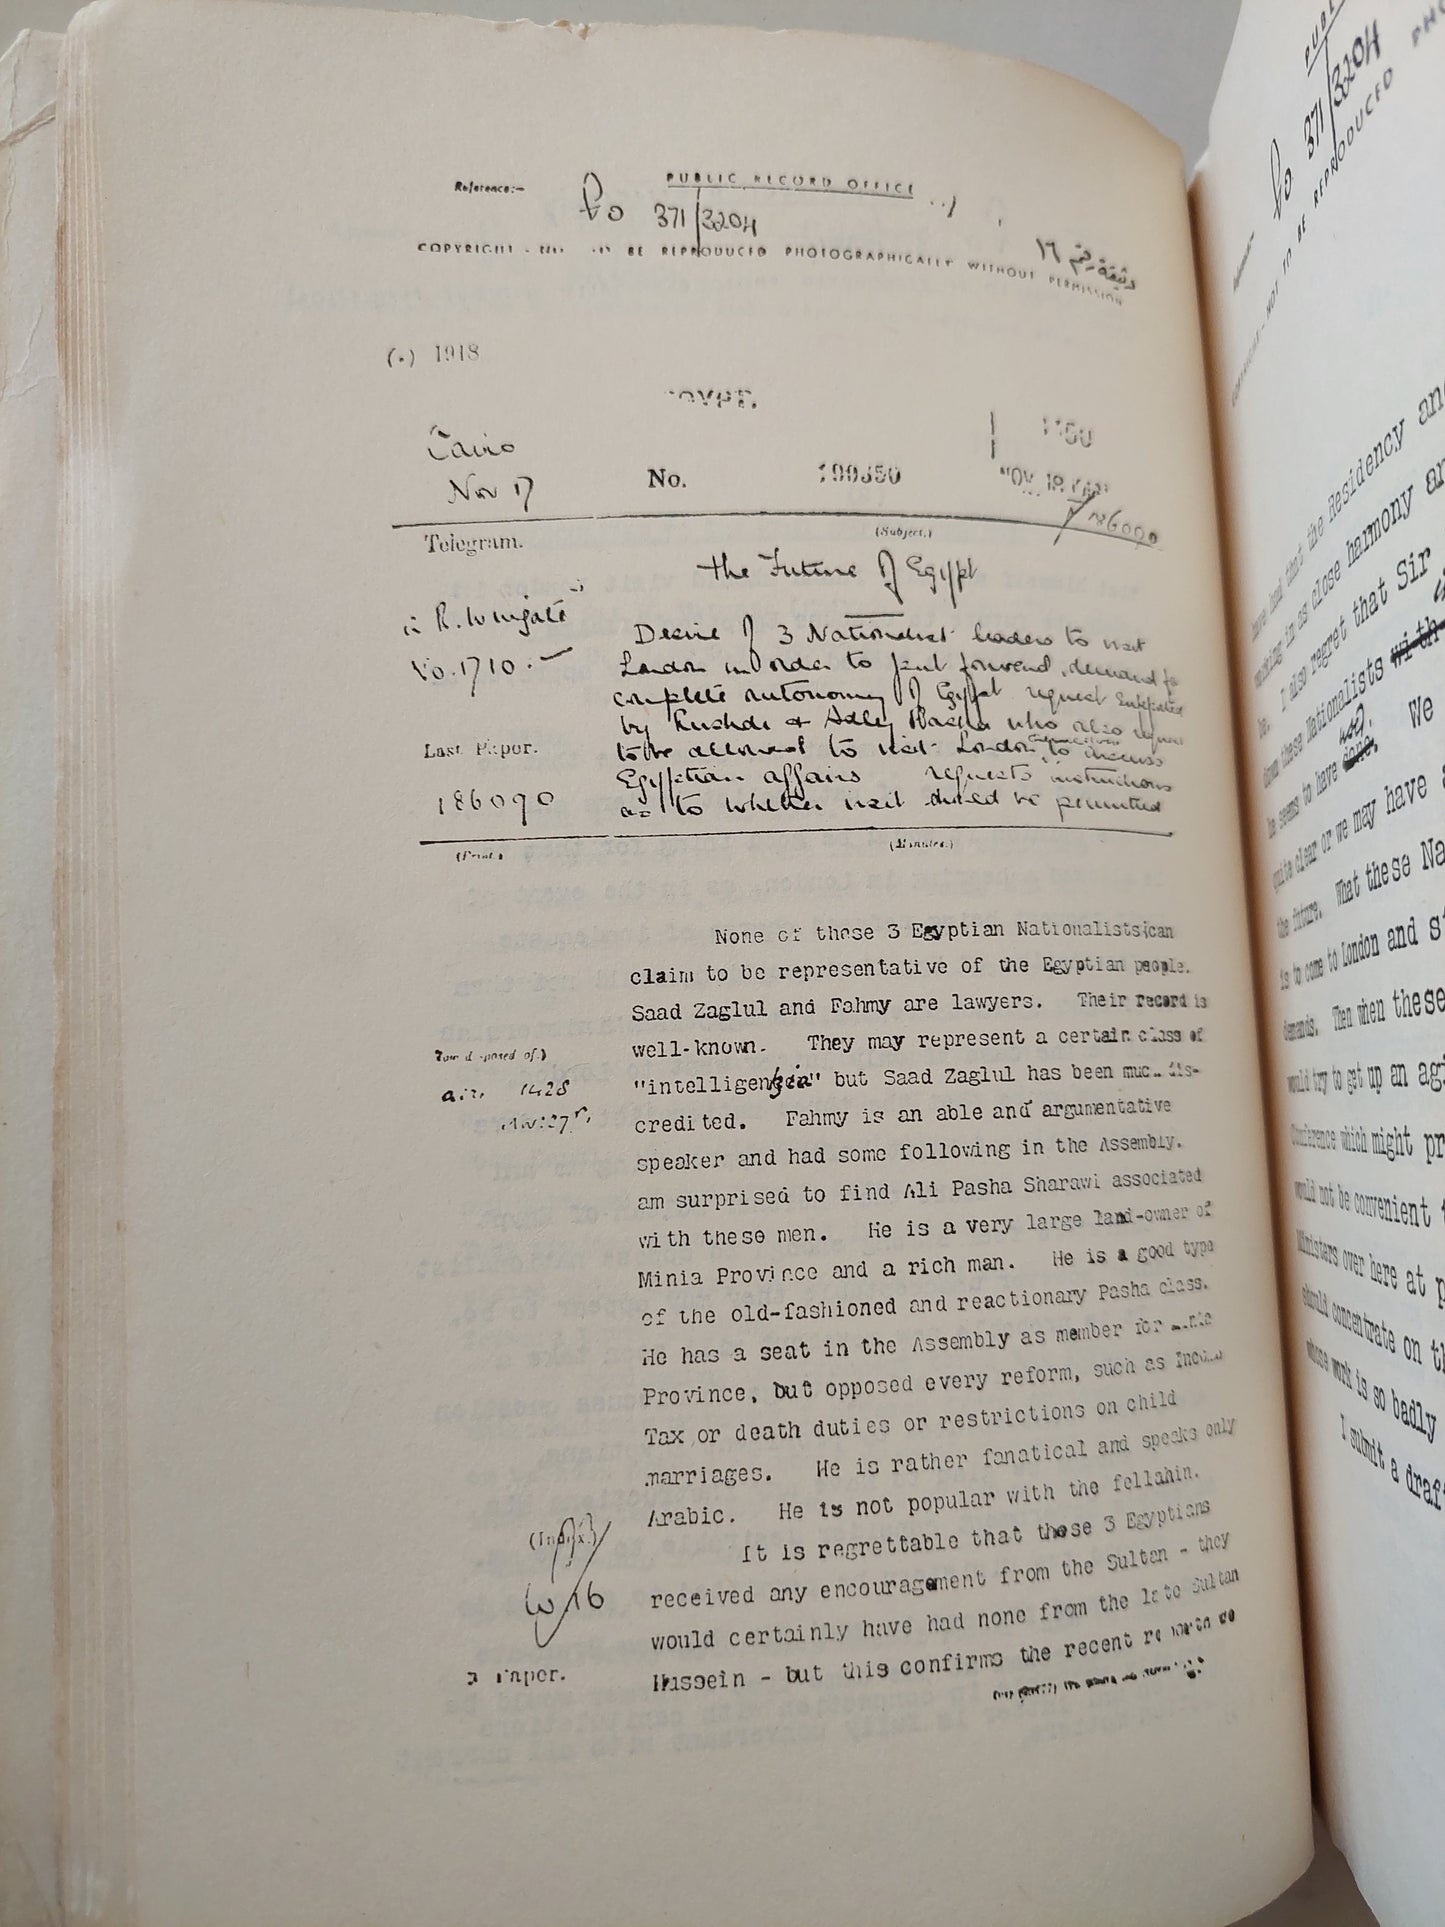 PUBLIC RECORD OFFICE
Reference:-
FO 371/3204
COPYRIGHT - BE REPRODUCED PHOTOGRAPHICALLY WITHOUT PERMISSION
وثيقة رقم ١٦
1918
Cairo
Nov 17
No.
186090
(Subject.)
Telegram.
The Future of Egypt
R. Wingate
No. 1710.
Desire of 3 Nationalist leaders to visit
London in order to put forward demand for
complete autonomy of Egypt request supported
by Rushdi & Adly Pasha who also request
to be allowed to visit London to discuss
Egyptian affairs requests instructions
as to whether visit should be permitted
Last Paper.
186090
(Print.)
(Minutes.)
None of these 3 Egyptian Nationalists can
claim to be representative of the Egyptian people.
Saad Zaglul and Fahmy are lawyers. Their record is
well-known. They may represent a certain class of
"intelligenzia" but Saad Zaglul has been much dis-
credited. Fahmy is an able and argumentative
speaker and had some following in the Assembly.
am surprised to find Ali Pasha Sharawi associated
with these men. He is a very large land-owner of
Minia Province and a rich man. He is a good type
of the old-fashioned and reactionary Pasha class.
He has a seat in the Assembly as member for
Province, but opposed every reform, such as Income
Tax or death duties or restrictions on child
marriages. He is rather fanatical and speaks only
Arabic. He is not popular with the fellahin.
It is regrettable that these 3 Egyptians
received any encouragement from the Sultan - they
would certainly have had none from the late Sultan
Hussein - but this confirms the recent reports we
(How disposed of.)
1428
(Index.)
W 16
Paper.
FO 371/3204
COPYRIGHT - NOT TO BE REPRODUCED
have had that the Residency and
working in as close harmony
be. I also regret that Sir
down these Nationalists with
he seems to have done. We
quite clear or we may have
the future. What these
is to come to London and
demands. Then when these
would try to get up an
Conference which might
would not be convenient
Ministers over here at
should concentrate on
whose work is so badly
I submit a draft